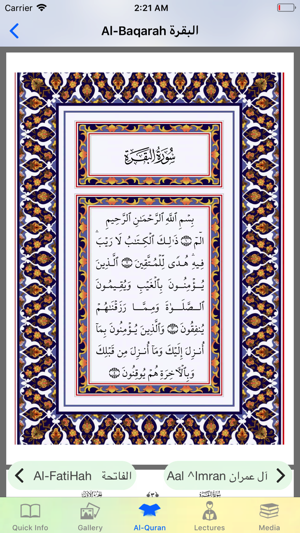 Carrier 2:21 AM
Al-Baqarah البقرة
سُورَةُ الْبَقَرَةِ
بِسْمِ اللَّهِ الرَّحْمَٰنِ الرَّحِيمِ
الٓمٓ ۝ ذَٰلِكَ الْكِتَابُ لَا رَيْبَ ۛ
فِيهِ ۛ هُدًى لِّلْمُتَّقِينَ ۝ الَّذِينَ
يُؤْمِنُونَ بِالْغَيْبِ وَيُقِيمُونَ
الصَّلَوٰةَ وَمِمَّا رَزَقْنَٰهُمْ
يُنفِقُونَ ۝ وَالَّذِينَ يُؤْمِنُونَ بِمَا
أُنزِلَ إِلَيْكَ وَمَا أُنزِلَ مِن قَبْلِكَ
وَبِالْآخِرَةِ هُمْ يُوقِنُونَ ۝
Al-FatiHah الفاتحة
Aal ^Imran آل عمران
Quick Info Gallery Al-Quran Lectures Media